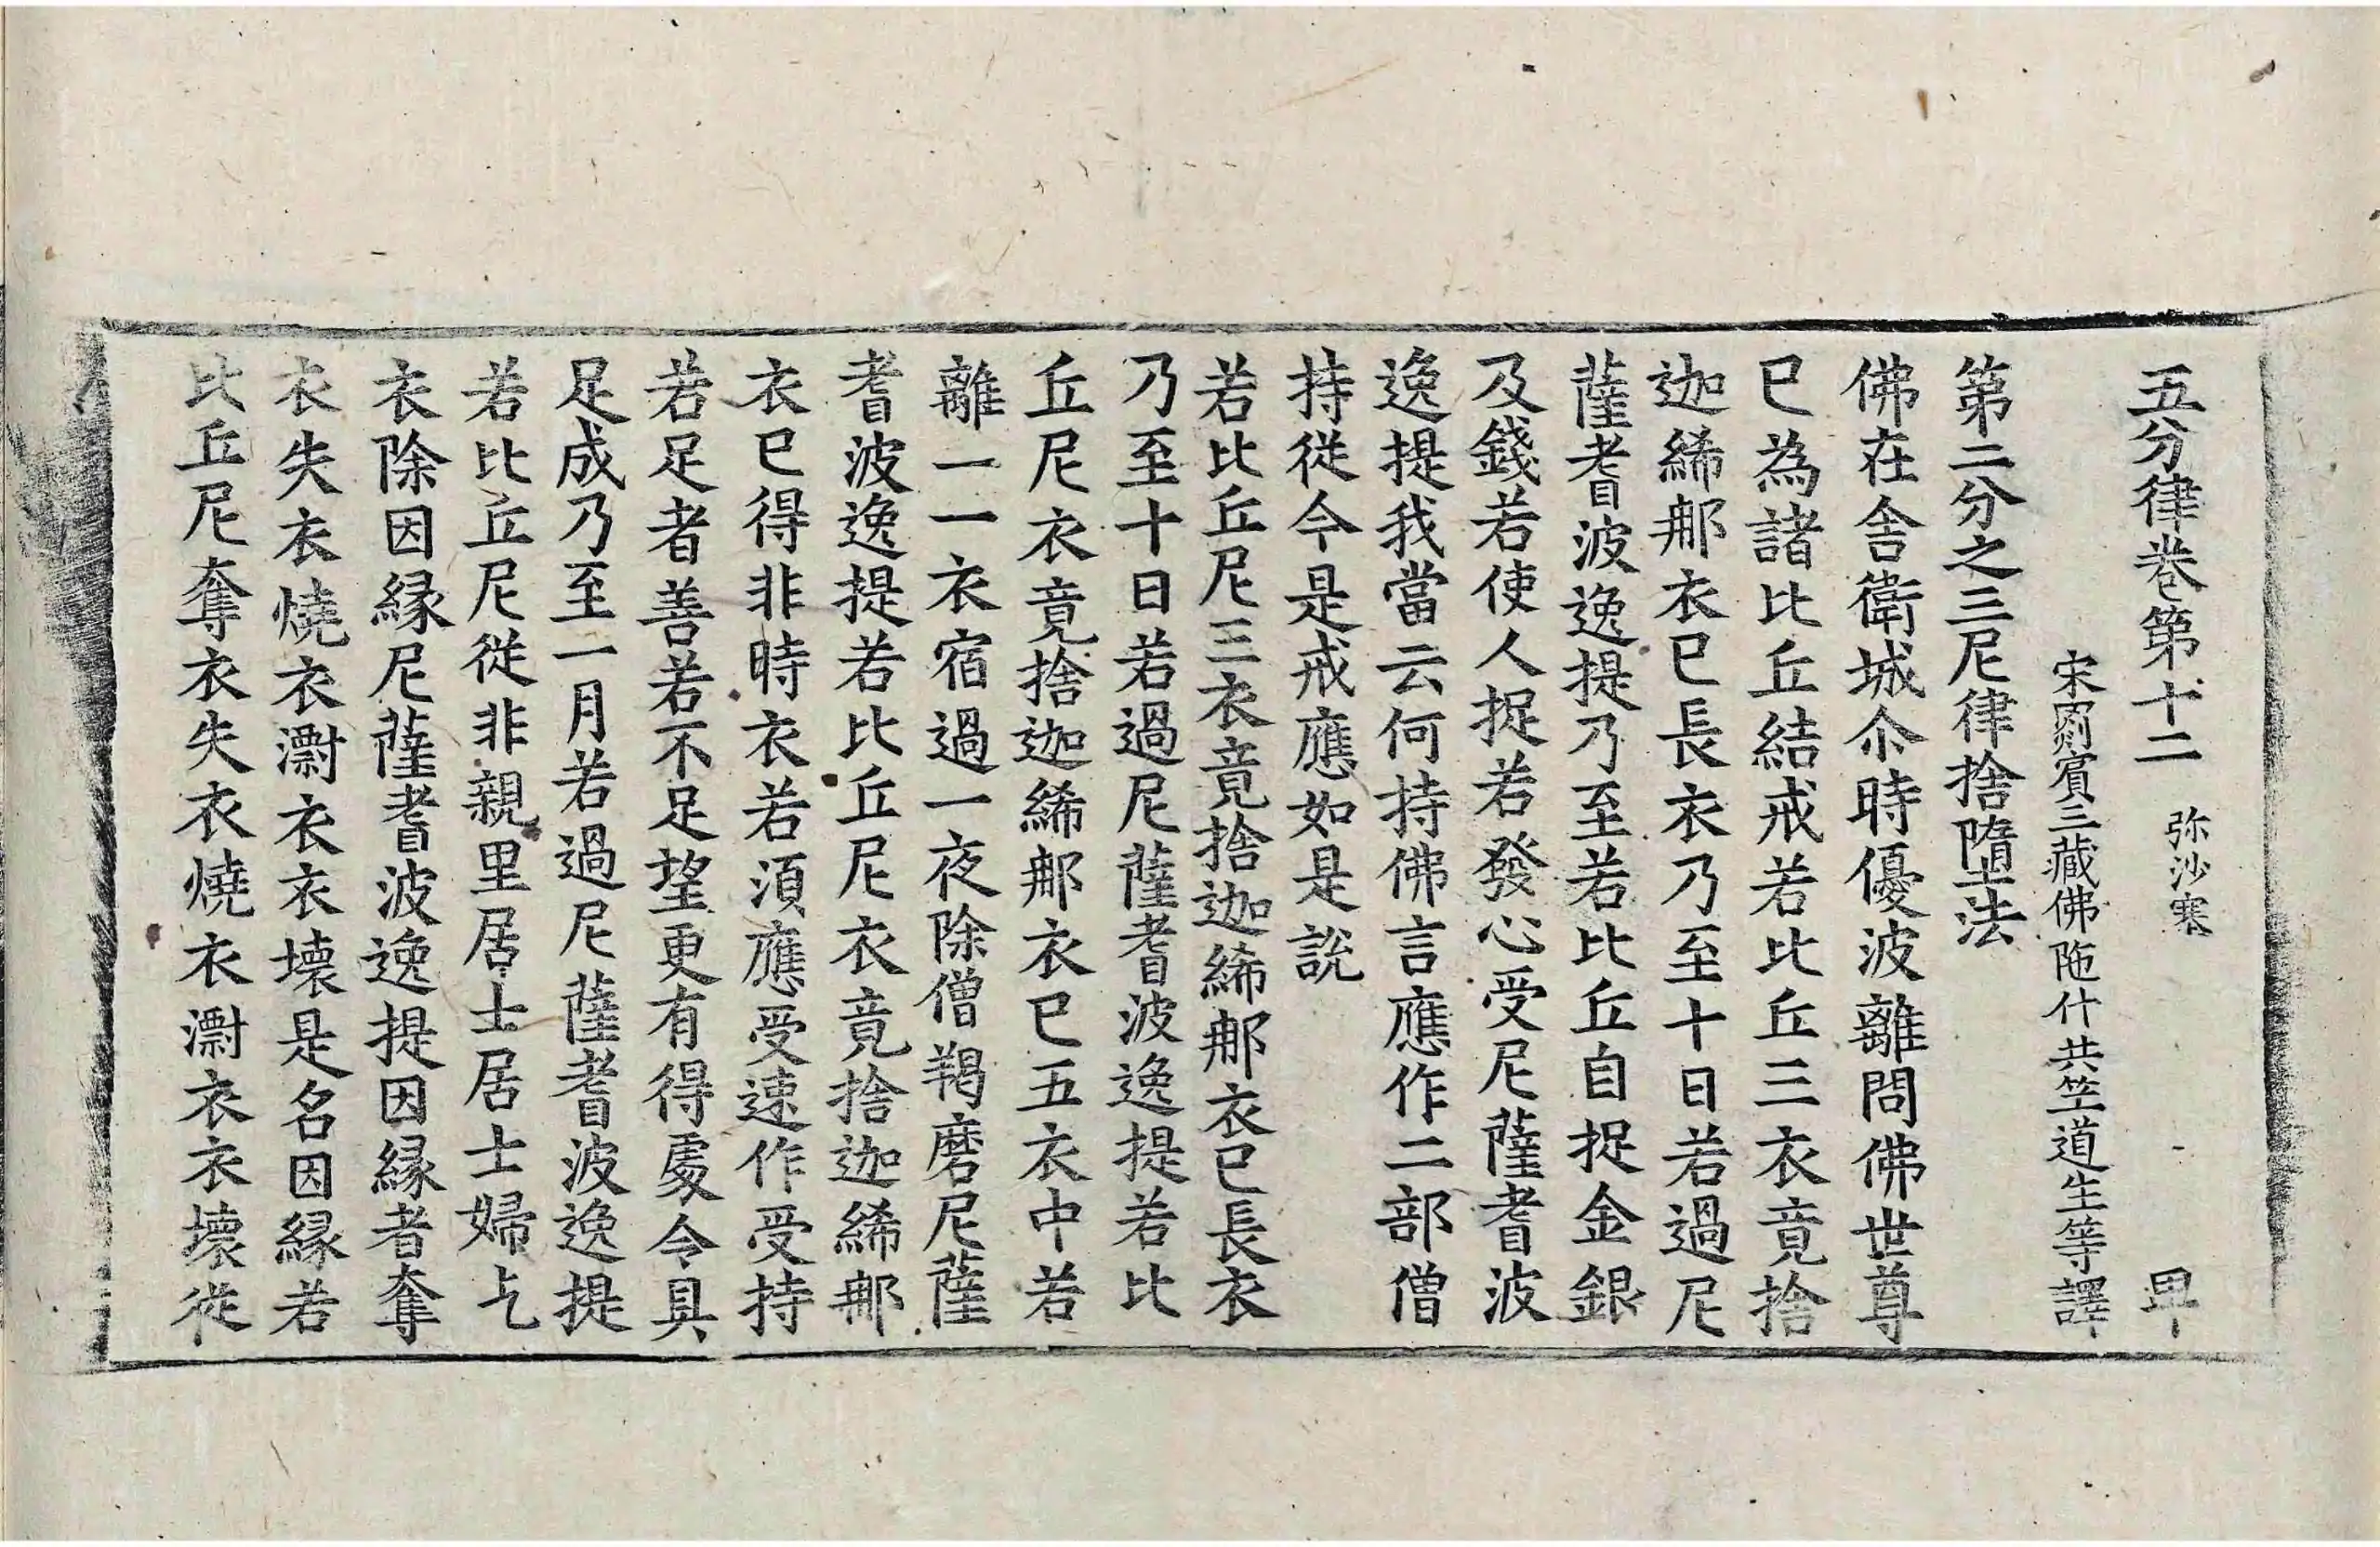 五分律卷第十二 弥沙塞 卑
宋罽賓三藏佛陁什共笁道生等譯
第二分之三尼律捨墮法
佛在舎衛城尒時優波離問佛世尊
已為諸比丘結戒若比丘三衣竟捨
迦絺郍衣已長衣乃至十日若過尼
薩耆波逸提乃至若比丘自捉金銀
及錢若使人捉若發心受尼薩耆波
逸提我當云何持佛言應作二部僧
持從今是戒應如是說
若比丘尼三衣竟捨迦絺郍衣已長衣
乃至十日若過尼薩耆波逸提若比
丘尼衣竟捨迦絺郍衣已五衣中若
離一一衣宿過一夜除僧羯磨尼薩
耆波逸提若比丘尼衣竟捨迦絺郍
衣已得非時衣若湏應受速作受持
若足者善若不足望更有得處令具
足成乃至一月若過尼薩耆波逸提
若比丘尼從非親里居士居士婦乞
衣除因縁尼薩耆波逸提因縁者奪
衣失衣燒衣漂衣衣壞是名因縁若
比丘尼奪衣失衣燒衣漂衣衣壞從